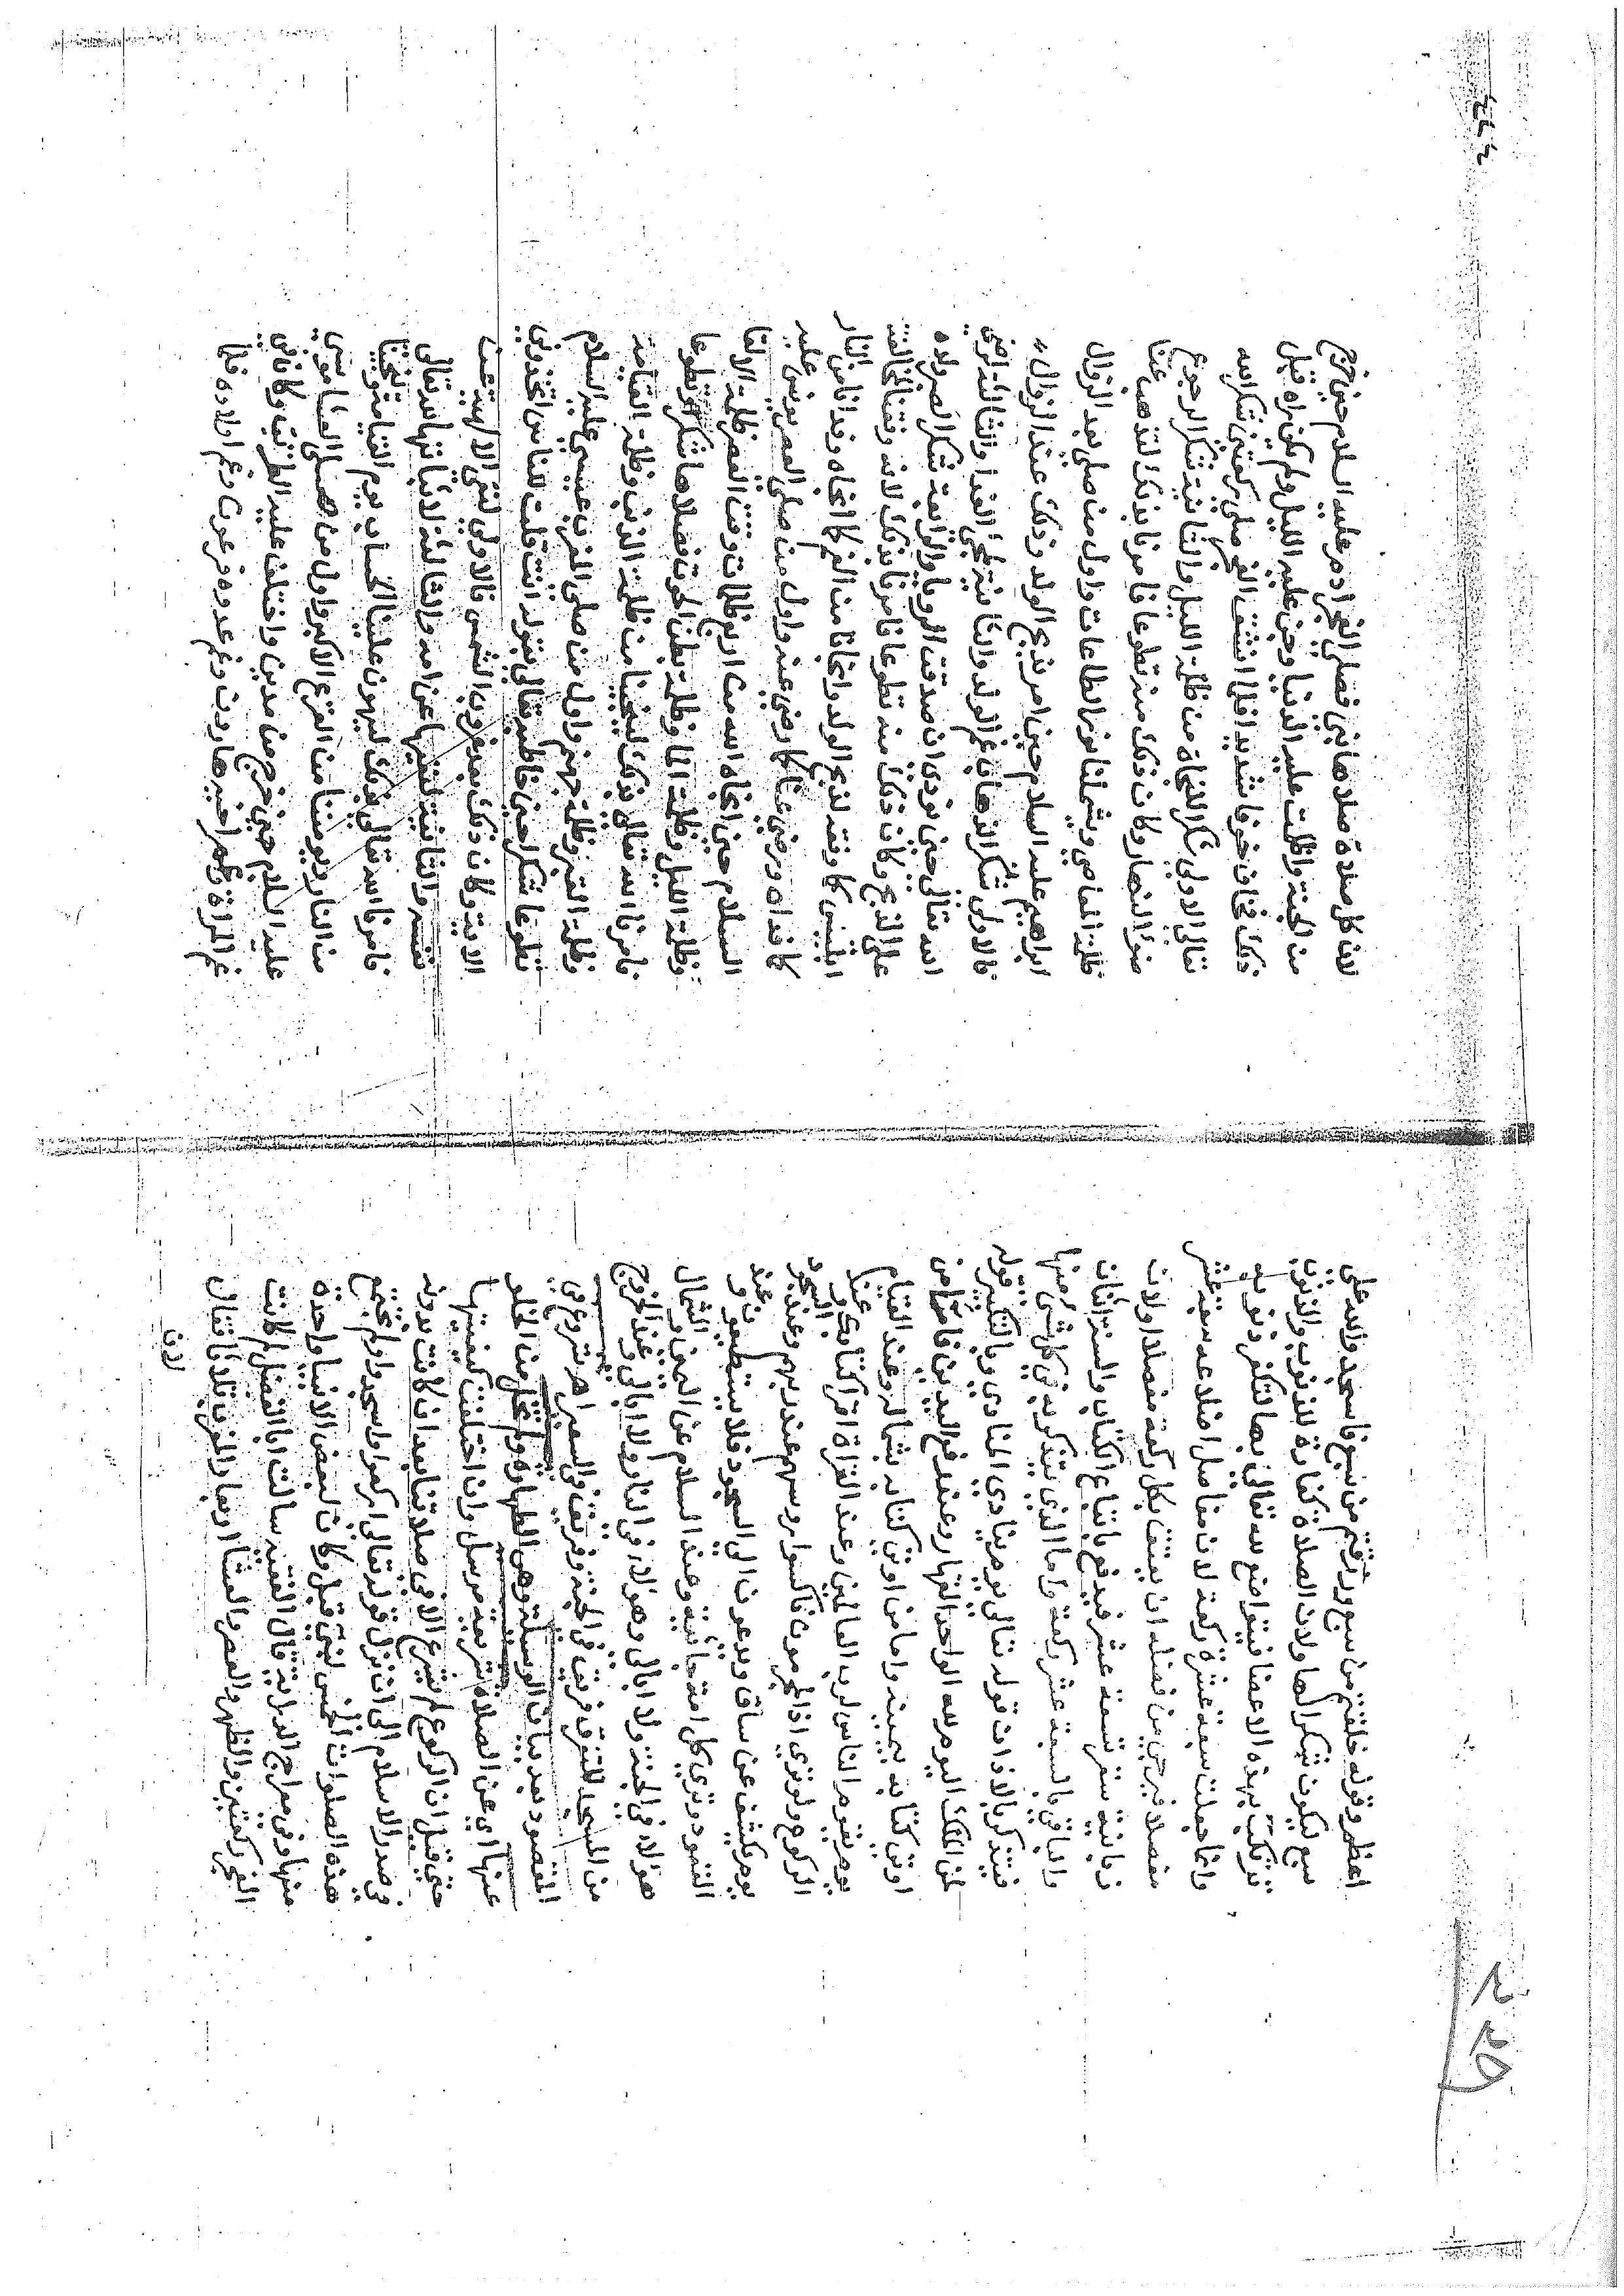 اعظم وقوله خلقتم من سبع ورزقتم من سبع فاسجدوا لله على
سبع ليكون شكرا لها ولان الصلاة كفارة للذنوب والذنوب
ترتكب بهذه الاعضا فيتواضع لله تعالى بها لتكفر ذنوبه
وانما جعلت سبعة عشرة ركعة لان مفاصل اضلاعه سبعة عشر
مفصلا فيرجى من فضله ان يعتق بكل ركعة مفصلا ولان
زبانية سقر تسعة عشر فيدفع باتباع الكتاب والسنة اثنان
والباقي بالسبعة عشر ركعة واما الذي يتذكر به في كل شي منها
فيتذكر بالاذان قوله تعالى يوم ينادي المنادي وبالتكبير قوله
لمن الملك اليوم لله الواحد القهار وعند رفع اليدين فاما من
اوتي كتابه بيمينه واما من اوتي كتابه بشماله وعند القيام
يوم يقوم الناس لرب العالمين وعند القراة اقرا كتابك وعند
الركوع ولو ترى اذ المجرمون ناكسوا روسهم عند ربهم وعند السجود
يوم يكشف عن ساق ويدعون الى السجود فلا يستطيعون وعند
القعود وترى كل امة جاثية وعند السلام عن اليمين والشمال
هولا في الجنة ولا ابالي وهولا في النار ولا ابالي وعند الخروج
من المسجد للتفرق فريق في الجنة وفريق في السعير اهـ شروع في
المقصود بعد بيان الوسيلة وهي الطهارة ولم تخل من الخلو
عنها اي عن الصلاة شريعة مرسل وان اختلفت كيفيتها
حتى قيل ان الركوع لم يشرع الا في صلاتنا بعد ان كانت بدونه
في صدر الاسلام الى ان نزل قوله تعالى اركعوا واسجدوا ولم تجتمع
هذه الصلوات الخمس لنبي قبل وكان لبعض الانبيا واحدة
منها وفي معراج الدراية قال الفقيه سالت ابا الفضل لم كانت
الفجر ركعتين والظهر والعصر والعشا اربعا والمغرب ثلاثا فقال
لان
لان كل صلاة صلاها نبي فصلى الفجر ادم عليه السلام حين خرج
من الجنة واظلمت عليه الدنيا وجن عليه الليل ولم يكن راه قبل
ذلك فخاف خوفا شديدا فلما انشق الفجر صلى ركعتين شكرا لله
تعالى الاولى شكرا للنجاة من ظلمة الليل والثانية شكرا لرجوع
ضوء النهار وكان ذلك منه تطوعا فامرنا بذلك لتذهب عنا
ظلمة المعاصي ويشملنا نور الطاعات واول من صلى بعد الزوال
ابراهيم عليه السلام حين امر بذبح الولد وذلك عند الزوال
فالاولى شكرا لذهاب غم الولد والثانية لمجي الفدا والثالثة لرضى
الله تعالى حين نودي ان صدقت الرويا والرابعة شكرا لصبر ولده
على الذبح وكان ذلك منه تطوعا فامرنا بذلك لانه وفقنا لمخالفة
ابليس كما وفقه لذبح الولد وانجانا من الغم كما انجاه وفدانا من النار
كما فداه ورضي عنا كما رضي عنه واول من صلى العصر يونس عليه
السلام حين انجاه الله من اربع ظلمات وقت العصر ظلمة الالتقا
وظلمة الليل وظلمة الما وظلمة بطن الحوت فصلاها شكرا وتطوعا
فامرنا الله تعالى بذلك لينجينا من ظلمة الذنب وظلمة القيامة
وظلمة القبر وظلمة جهنم واول من صلى المغرب عيسى عليه السلام
تطوعا شكرا حين خاطبه تعالى بقوله اانت قلت للناس اتخذوني
الاية وكان ذلك بعد غروب الشمس فالاولى لنفي الالهية عن
نفسه والثانية لنفيها عن امه والثالثة لاثباتها لله تعالى
فامرنا الله تعالى بذلك ليهون علينا الحساب يوم القيامة وينجينا
من النار ويومننا من الفزع الاكبر واول من صلى العشا موسى
عليه السلام حين خرج من مدين واختلف عليه الطريق وكان في
غم المراة وغم اخيه هارون وغم عدوه فرعون وغم اولاده فلما